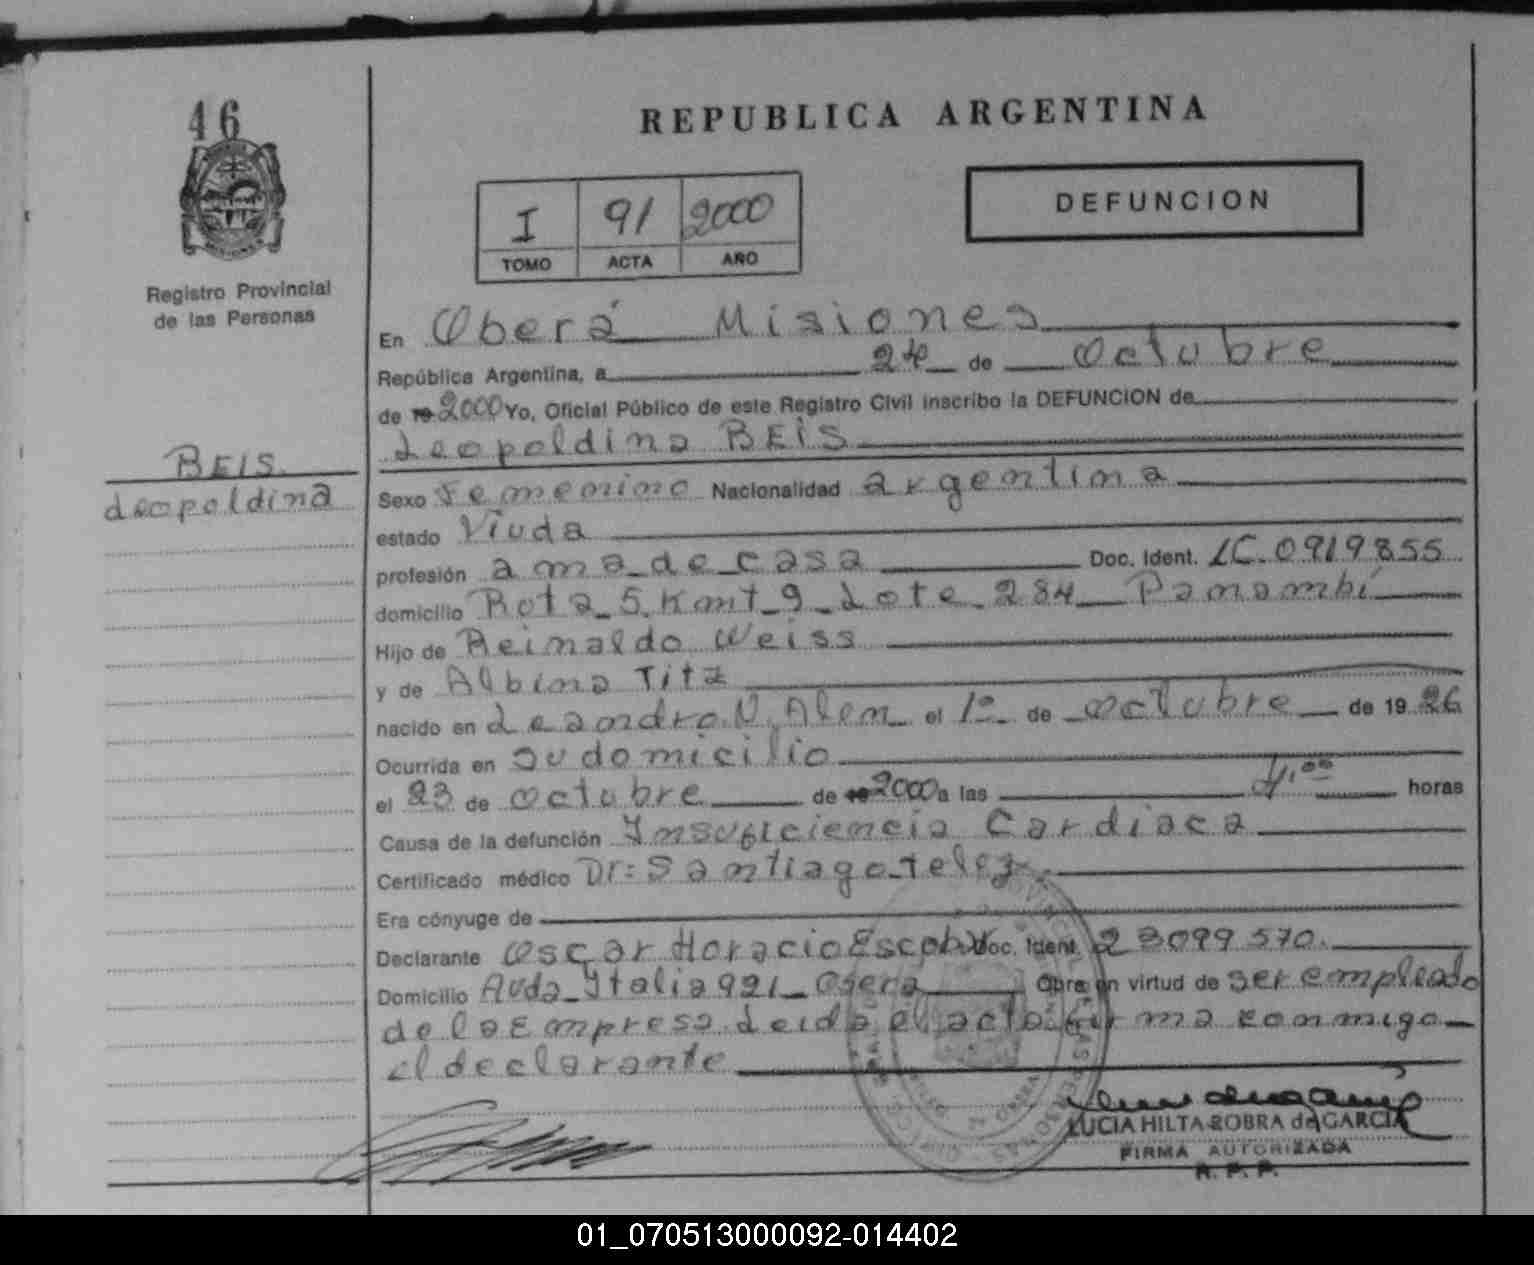 46
REPUBLICA ARGENTINA
I 91 2000
TOMO ACTA AÑO
DEFUNCION
Registro Provincial
de las Personas
En Oberá Misiones
República Argentina, a 24 de Octubre
de 19 2000 Yo, Oficial Público de este Registro Civil inscribo la DEFUNCION de
Leopoldina BEIS
BEIS
Leopoldina
Sexo Femenino Nacionalidad argentina
estado Viuda
profesión ama de casa Doc. Ident. LC. 0919855
domicilio Rota 5. Kmt 9 Lote 284 Panambí
Hijo de Reinaldo Weiss
y de Albina Titz
nacido en Leandro N. Alem el 1º de octubre de 1926
Ocurrida en su domicilio
el 23 de octubre de 19 2000 a las 4,00 horas
Causa de la defunción Insuficiencia Cardiaca
Certificado médico Dr: Santiago telez
Era cónyuge de
Declarante Oscar Horacio Escobar Doc. Ident. 23099570.
Domicilio Avda Italia 921 Obera Obra en virtud de ser empleado
de la Empresa. Leida el acta firma conmigo
el declarante
LUCIA HILTA ROBRA de GARCIA
FIRMA AUTORIZADA
R. P. P.
01_070513000092-014402